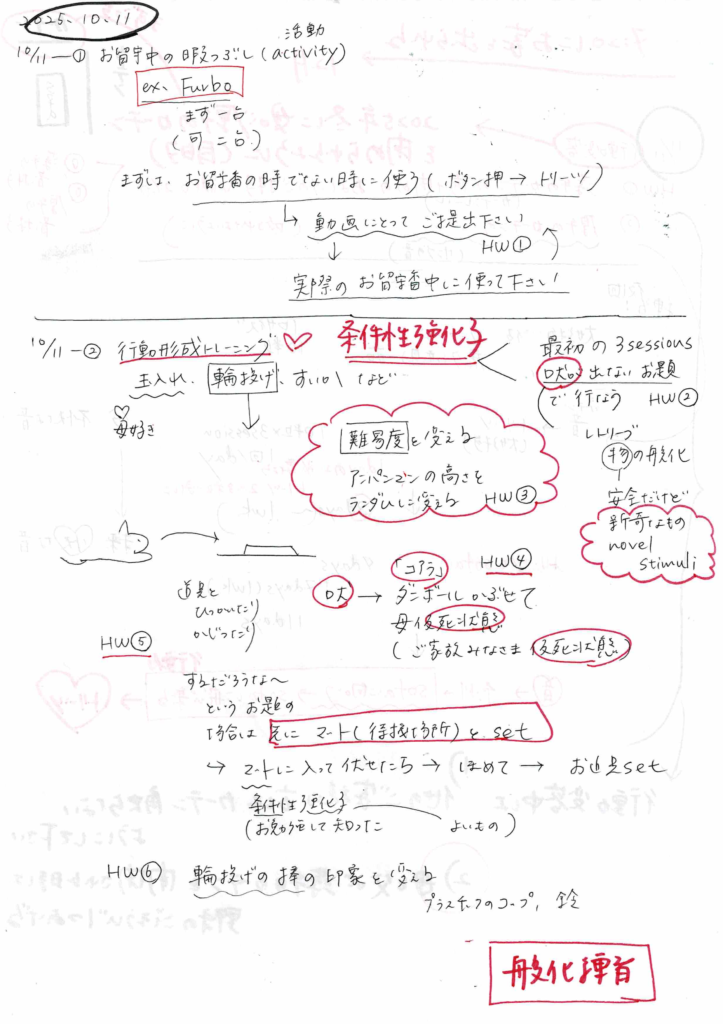 2025.10.11
活動
10/11-① お留守中の暇つぶし (activity)
ex. Furbo
まず一台
(可 二台)
まずは、お留守番の時でない時に使う (ボタン押 → トリーツ)
↳ 動画にとって ご提出下さい
HW①
実際の お留守番中に使って下さい
10/11-② 行動形成トレーニング ♡ 条件性強化子
玉入れ、輪投げ、すいか など
母好き
最初の 3sessions
吠の出ない お題
で 行なう HW②
難易度を変える
アンパンマンの高さを
ランダムに変える HW③
レトリーブ
物の般化
安全だけど
新奇なもの
novel
stimuli
「コアラ」 HW④
吠 → ダンボール かぶせて
母 仮死状態
(ご家族みなさま 仮死状態)
道具を
ひっかいたり
かじったり
HW⑤
するだろうな〜
という お題の
場合は 先に マート(待機場所)を set
↳ マートに 入って 伏せたら → ほめて → お道具set
条件性強化子
(お勉強して 知った よいもの)
HW⑥ 輪投げの 棒の 印象を 変える
プラスチックのコップ、鈴
般化練習